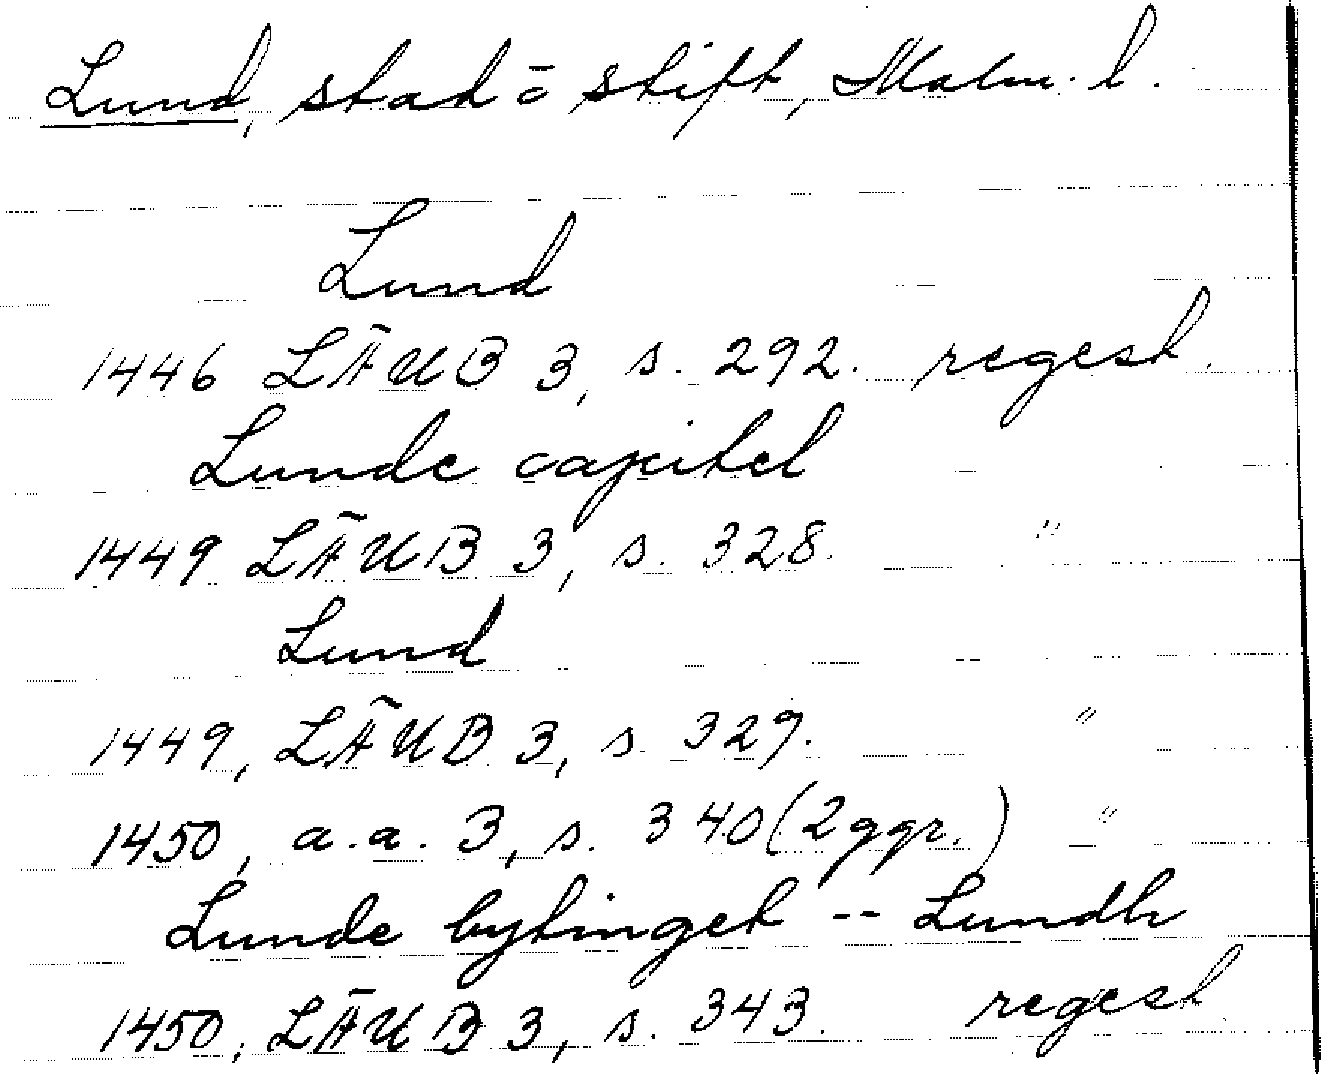 Lund, stad o stift, Malm. l.
Lund
1446 LÄUB 3, s. 292. regest.
Lunde capitel
1449 LÄUB 3, s. 328. "
Lund
1449, LÄUB 3, s. 329. "
1450, a.a. 3, s. 340 (2 ggr.) "
Lunde bytinget -- Lundh
1450, LÄUB 3, s. 343. regest